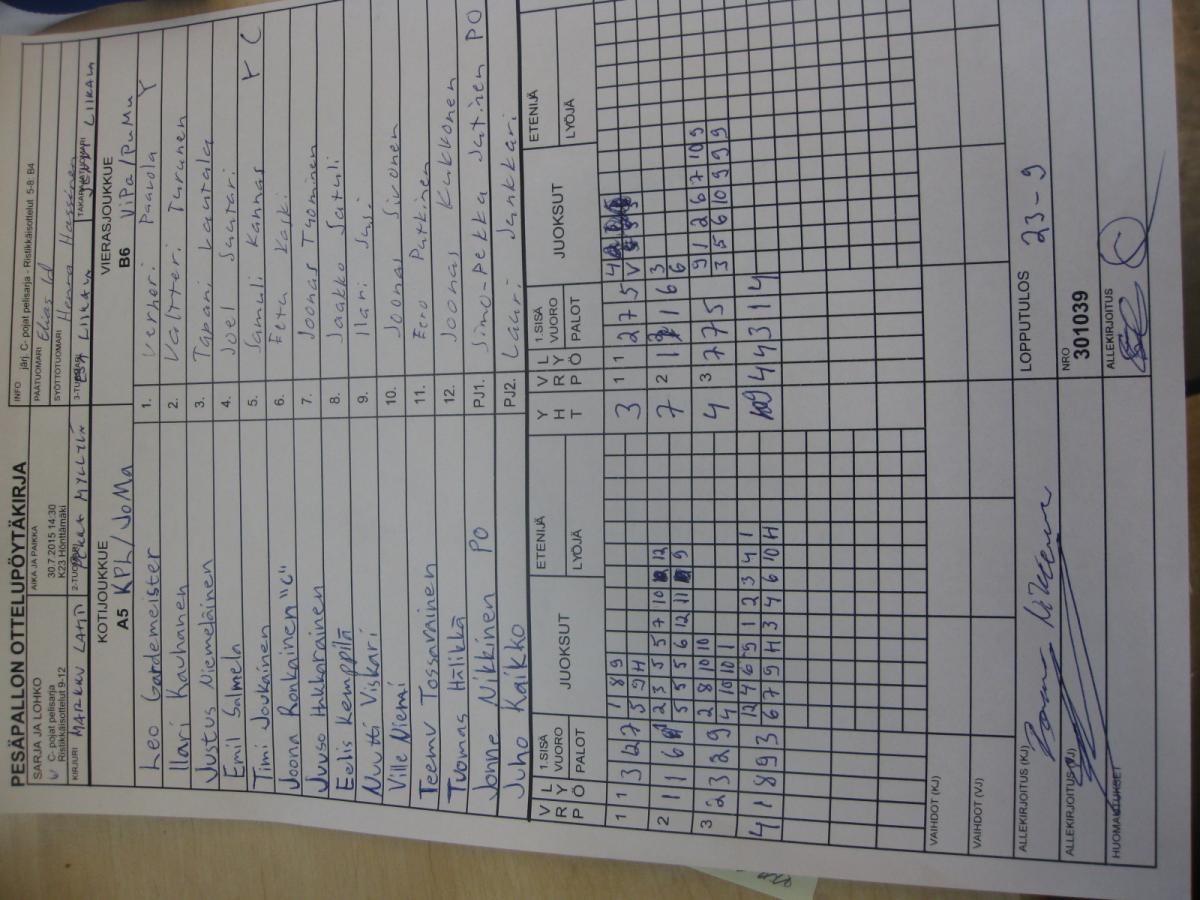 PESÄPALLON OTTELUPÖYTÄKIRJA
SARJA JA LOHKO
C- pojat pelisarja
Ristikkäisottelut 9-12
AIKA JA PAIKKA
30.7.2015 14:30
K23 Hönttämäki
INFO järj. C- pojat pelisarja - Ristikkäisottelut 5-8: B4
PÄÄTUOMARI
SYÖTTÖTUOMARI Henna Hassinen
KIRJURI MARKKU LAHTI
2-TUOMARI
3-TUOMARI ESA LIIKANEN
TAKARAJATUOMARI LIIKAN
KOTIJOUKKUE
A5 KPL/JoMa
VIERASJOUKKUE
B6 ViPa/PuMu
Leo Gardemeister
1. Verneri Paavola Y
Ilari Kauhanen
2. Valtteri Turunen
Justus Niemeläinen
3. Tapani Lautala
Emil Salmela
4. Joel Saatari
Timi Joukainen
5. Samuli Kannas Y C
Joona Ronkainen "C"
6. Eetu Kaki
Juuso Hukkarainen
7. Joonas Tuominen
Eelis Kemppilä
8. Jaakko Satuli
Nuutti Viskari
9. Ilari Susi
Ville Niemi
10. Joonas Sivonen
Teemu Tossavainen
11. Eero Putkinen
Tuomas Hälikkä
12. Joonas Kukkonen
Jonne Nikkinen PO
PJ1. Simo-Pekka Jatinen PO
Juho Kaikko
PJ2. Lauri Jankkari
V R P
L Y Ö
1.SISA VUORO PALOT
JUOKSUT
ETENIJÄ LYÖJÄ
Y H T
V R P
L Y Ö
1.SISA VUORO PALOT
JUOKSUT
ETENIJÄ LYÖJÄ
1 1 3 12 7
1 8 9
5 9 H
3
1 1 2 7 5
2 1 1 6
2 3 5 5 7 10 12
5 5 5 6 12 11 9
7
2 1 1 6
3
6
3 2 3 2 9
2 8 10 10
4 10 10 1
4
3 7 7 5
9 1 2 6 7 10 9
3 5 6 10 9 9 9
4 1 8 9 3
12 4 6 9 1 2 3 4 1
6 7 9 H 3 4 6 10 H
9
4 4 3 1 4
VAIHDOT (KJ)
VAIHDOT (VJ)
ALLEKIRJOITUS (KJ)
LOPPUTULOS 23-9
ALLEKIRJOITUS (VJ)
NRO
301039
HUOMAUTUKSET
ALLEKIRJOITUS